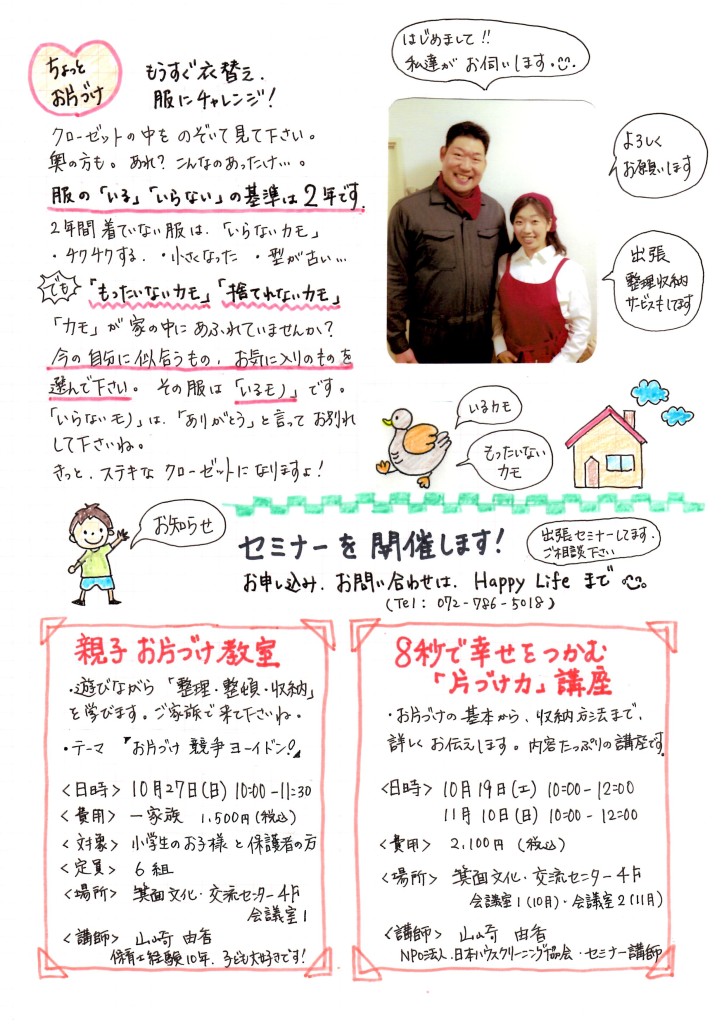 ちょっと
お片づけ
もうすぐ衣替え、
服にチャレンジ!
クローゼットの中をのぞいて見て下さい。
奥の方も。あれ?こんなのあったけ…。
服の「いる」「いらない」の基準は2年です。
2年間着ていない服は、「いらないカモ」
・チクチクする、・小さくなった ・型が古い…
でも
「もったいないカモ」「捨てれないカモ」
「カモ」が家の中にあふれていませんか?
今の自分に似合うもの、お気に入りのものを
選んで下さい。その服は「いるモノ」です。
「いらないモノ」は、「ありがとう」と言ってお別れ
して下さいね。
きっと、ステキなクローゼットになりますよ!
はじめまして!!
私達がお伺いします。
よろしく
お願いします
出張
整理収納
サービスもしてます
いるカモ
もったいない
カモ
お知らせ
セミナーを開催します!
出張セミナーしてます。
ご相談下さい
お申し込み、お問い合わせは、Happy Lifeまで
(Tel: 072-786-5018)
親子お片づけ教室
・遊びながら「整理・整頓・収納」
を学びます。ご家族で来て下さいね。
・テーマ『お片づけ競争ヨーイドン!』
<日時> 10月27日(日) 10:00-11:30
<費用> 一家族 1,500円(税込)
<対象> 小学生のお子様と保護者の方
<定員> 6組
<場所> 箕面文化・交流センター4F
会議室1
<講師> 山崎 由香
保育士経験10年、子ども大好きです!
8秒で幸せをつかむ
「片づけ力」講座
・お片づけの基本から、収納方法まで、
詳しくお伝えします。内容たっぷりの講座です。
<日時> 10月19日(土) 10:00-12:00
11月10日(日) 10:00-12:00
<費用> 2,100円(税込)
<場所> 箕面文化・交流センター4F
会議室1(10月)・会議室2(11月)
<講師> 山崎 由香
NPO法人、日本ハウスクリーニング協会・セミナー講師